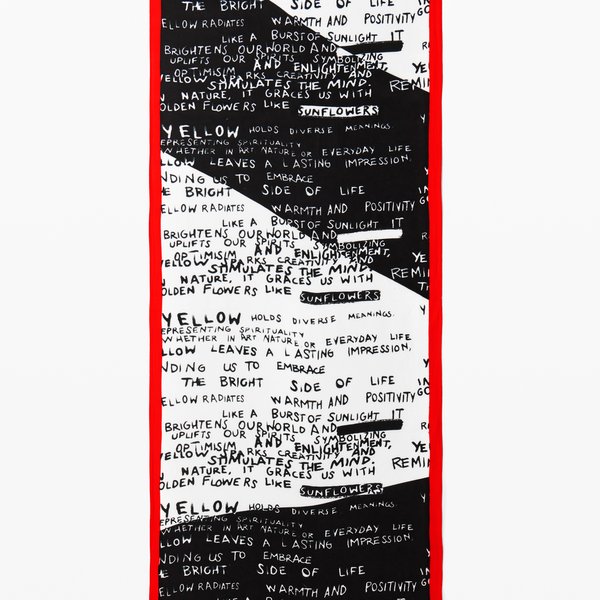 THE BRIGHT SIDE OF LIFE IN
ELLOW RADIATES WARMTH AND POSITIVITY GO
LIKE A BURST OF SUNLIGHT IT
BRIGHTENS OUR WORLD AND
UPLIFTS OUR SPIRITS SYMBOLIZING
OPTIMISIM AND ENLIGHTENMENT, YE
YELLOW SPARKS CREATIVITY AND
STIMULATES THE MIND. REMIN
NATURE, IT GRACES US WITH
OLDEN FLOWERS LIKE SUNFLOWERS
YELLOW HOLDS DIVERSE MEANINGS. Y
EPRESENTING SPIRITUALITY
WHETHER IN ART NATURE OR EVERYDAY LIFE
LLOW LEAVES A LASTING IMPRESSION,
NDING US TO EMBRACE
E BRIGHT SIDE OF LIFE IN
ELLOW RADIATES WARMTH AND POSITIVITY GO
LIKE A BURST OF SUNLIGHT IT
BRIGHTENS OUR WORLD AND
UPLIFTS OUR SPIRITS SYMBOLIZING
OPTIMISIM AND ENLIGHTENMENT, YE
YELLOW SPARKS CREATIVITY AND
STIMULATES THE MIND. REMIN
NATURE, IT GRACES US WITH
OLDEN FLOWERS LIKE SUNFLOWERS
YELLOW HOLDS DIVERSE MEANINGS. Y
EPRESENTING SPIRITUALITY
WHETHER IN ART NATURE OR EVERYDAY LIFE
LLOW LEAVES A LASTING IMPRESSION,
NDING US TO EMBRACE
THE BRIGHT SIDE OF LIFE IN
ELLOW RADIATES WARMTH AND POSITIVITY GO
LIKE A BURST OF SUNLIGHT IT
BRIGHTENS OUR WORLD AND
UPLIFTS OUR SPIRITS SYMBOLIZING
OPTIMISIM AND ENLIGHTENMENT, YE
YELLOW SPARKS CREATIVITY AND
STIMULATES THE MIND. REMIN
NATURE, IT GRACES US WITH
OLDEN FLOWERS LIKE SUNFLOWERS
YELLOW HOLDS DIVERSE MEANINGS. Y
EPRESENTING SPIRITUALITY
WHETHER IN ART NATURE OR EVERYDAY LIFE
LLOW LEAVES A LASTING IMPRESSION,
NDING US TO EMBRACE
E BRIGHT SIDE OF LIFE IN
ELLOW RADIATES WARMTH AND POSITIVITY GO